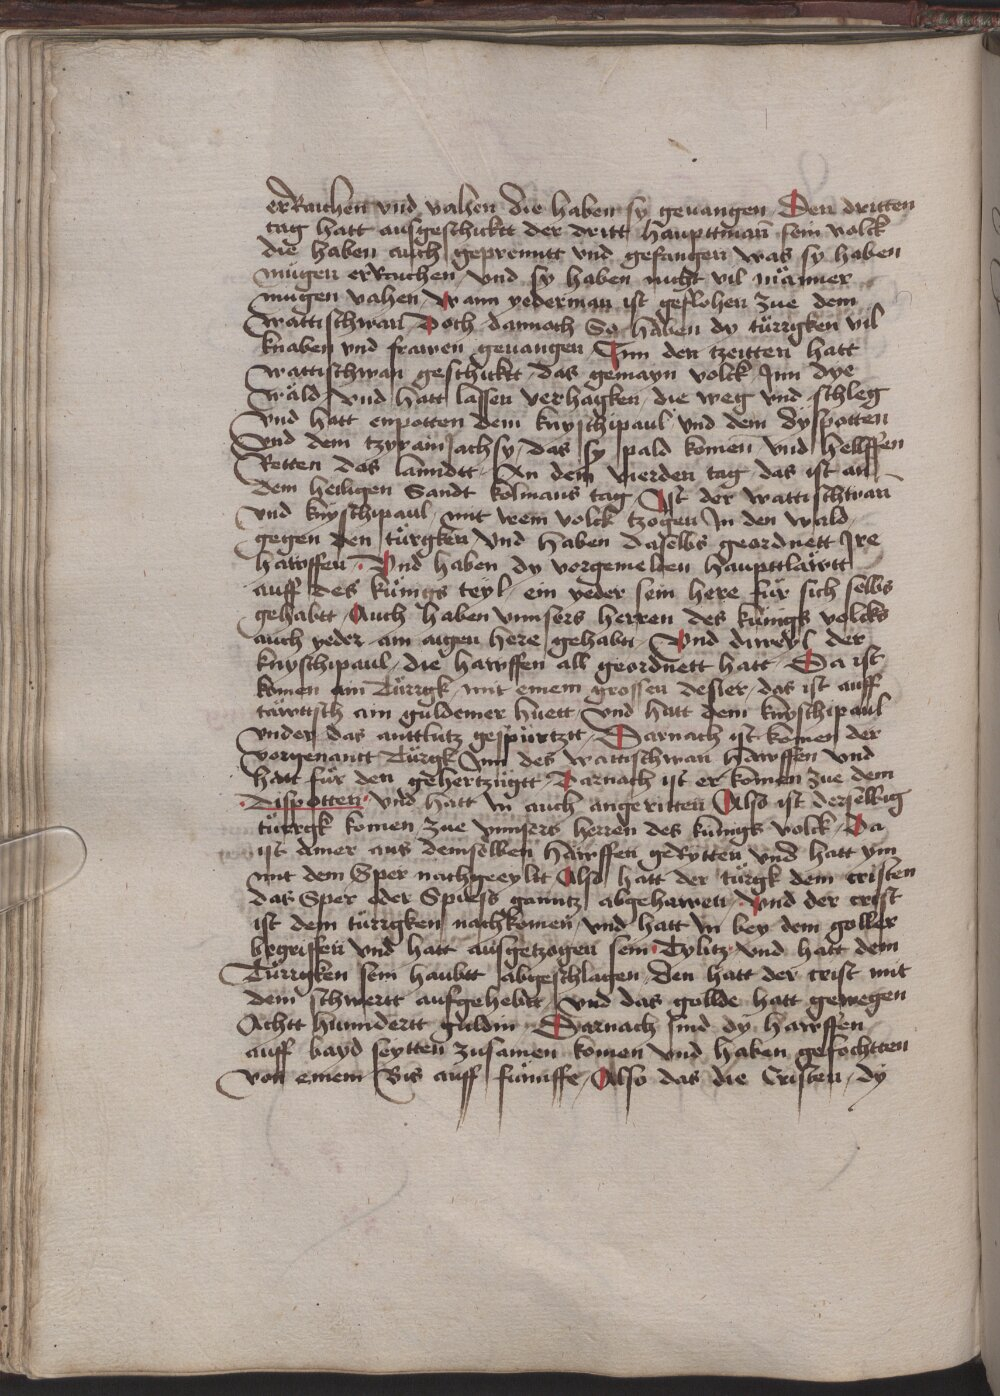 erRaichen vnd vahen die haben sy geuangen / Den dritten
tag hatt ausgeschicktt der dritt haupttman sein volck
die haben auch geprenntt vnd gefangen was sy haben
mugen erRaichen / vnd sy haben nicht vil männer
mugen vahen / Wann yederman ist geflohen zue dem
wattischwan / Doch dannoch So haben dy türrgken vil
knaben vnd frawen geuangen / Inn den tzeitten hatt
wattischwan geschicktt / das gemayn volck / Inn dye
wäld / vnd hatt lassen verhagken / die weg vnd schleg
vnd hatt enpotten dem knyschipaul / vnd dem dyspotten
Vnd dem tzyrain Jachsy / das sy pald komen vnd hellffen
Retten das lanndtt / An dem vierden tag / das ist an
dem heiligen Sandt kolmans tag / Ist der wattischwan
vnd knyschipaul / mit irem volck tzogen In den wald
gegen den türgken / vnd haben daselbs geordnett Ire
hawffen / Vnd haben dy vorgemelten haupttläwtt
auff des künigs teyl / ein yeder sein here für sich selbs
gehabtt / Auch haben vnnsers herren des künigs volcks
auch yeder ain aigen here gehabtt / Vnd dweyl der
knyschipaul / die hawffen all geordnett hatt / Da ist
komen ain Türrgk / mit einem grossen desler / das ist auff
täwttsch ain guldemer huett / Vnd hatt dem knyschipaul
vnder das anttlutz gespürtzt / Darnach ist komen der
vorgenantt Türgk / Vnn des wattischwan hawffen vnd
hatt für den gehertzügtt / Darnach ist er komen zue dem
Dispotten / vnd hatt in auch angeritten / Also ist derselbig
türrgk komen / zue vnnsers herren des künigs volck / Da
ist ainer aus demselben hawffen geRytten vnd hatt ym
mit dem Sper nachgeeylt / Also hatt der türgk dem cristen
das Sper oder Spiess ganntz abgehawen / vnd der crist
ist dem türrgken nachkomen / vnd hatt in bey dem goller
begriffen vnd hatt ausgetzogen sein Tylitz vnd hatt dem
Türrgken sein haubtt abgeschlagen / den hatt der crist mit
dem schwertt aufgehebtt / vnd das gollde hatt gewegen
Achtt hunndertt guldin / Darnach sind dy hawffen
auff bayd seytten zusamen komen vnd haben gefochtten
von einem Bis auff fünnffe / Also das die Cristen / dy